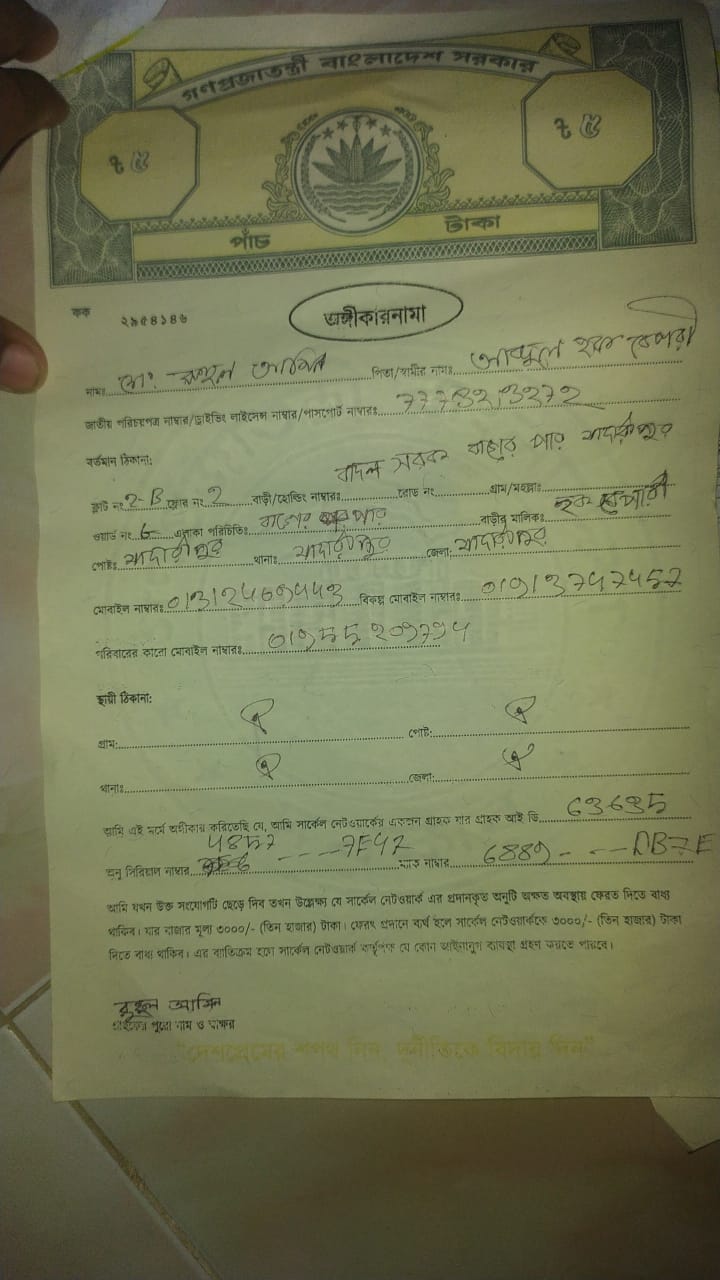 গণপ্রজাতন্ত্রী বাংলাদেশ সরকার
৳ ৫ ৳ ৫
পাঁচ টাকা
কক ২৯৫৪১৪৬
অঙ্গীকারনামা
নামঃ মো: রুহুল আমিন পিতা/স্বামীর নামঃ আব্দুল হক বেপারী
জাতীয় পরিচয়পত্র নাম্বার/ড্রাইভিং লাইসেন্স নাম্বার/পাসপোর্ট নাম্বারঃ
বর্তমান ঠিকানা:
বাদল সরকার পার মাদারীপুর
ফ্লাট নং 2-B ফ্লোর নং 2 বাড়ী/হোল্ডিং নাম্বারঃ রোড নং গ্রাম/মহল্লাঃ
ওয়ার্ড নং 6 এলাকা পরিচিতিঃ পার বাড়ীর মালিকঃ হক বেপারী
পোষ্টঃ মাদারীপুর থানাঃ মাদারীপুর জেলা: মাদারীপুর
মোবাইল নাম্বারঃ বিকল্প মোবাইল নাম্বারঃ 01913747457
পরিবারের কারো মোবাইল নাম্বারঃ
স্থায়ী ঠিকানা:
গ্রাম: পোষ্ট:
থানাঃ জেলা:
আমি এই মর্মে অঙ্গীকার করিতেছি যে, আমি সার্কেল নেটওয়ার্কের একজন গ্রাহক যার গ্রাহক আই ডি 63635
4857
অনু সিরিয়াল নাম্বার ----7F42 ম্যাক নাম্বার 6889- --AB7E
আমি যখন উক্ত সংযোগটি ছেড়ে দিব তখন উল্লেক্ষ্য যে সার্কেল নেটওয়ার্ক এর প্রদানকৃত অনুটি অক্ষত অবস্থায় ফেরত দিতে বাধ্য
থাকিব। যার বাজার মূল্য ৩০০০/- (তিন হাজার) টাকা। ফেরৎ প্রদানে ব্যর্থ হলে সার্কেল নেটওয়ার্ককে ৩০০০/- (তিন হাজার) টাকা
দিতে বাধ্য থাকিব। এর ব্যতিক্রম হলে সার্কেল নেটওয়ার্ক কর্তৃপক্ষ যে কোন আইনানুগ ব্যবস্থা গ্রহণ করতে পারবে।
রুহুল আমিন
গ্রাহকের পুরো নাম ও স্বাক্ষর
"দেশপ্রেমের শপথ নিন, দুর্নীতিকে বিদায় দিন"